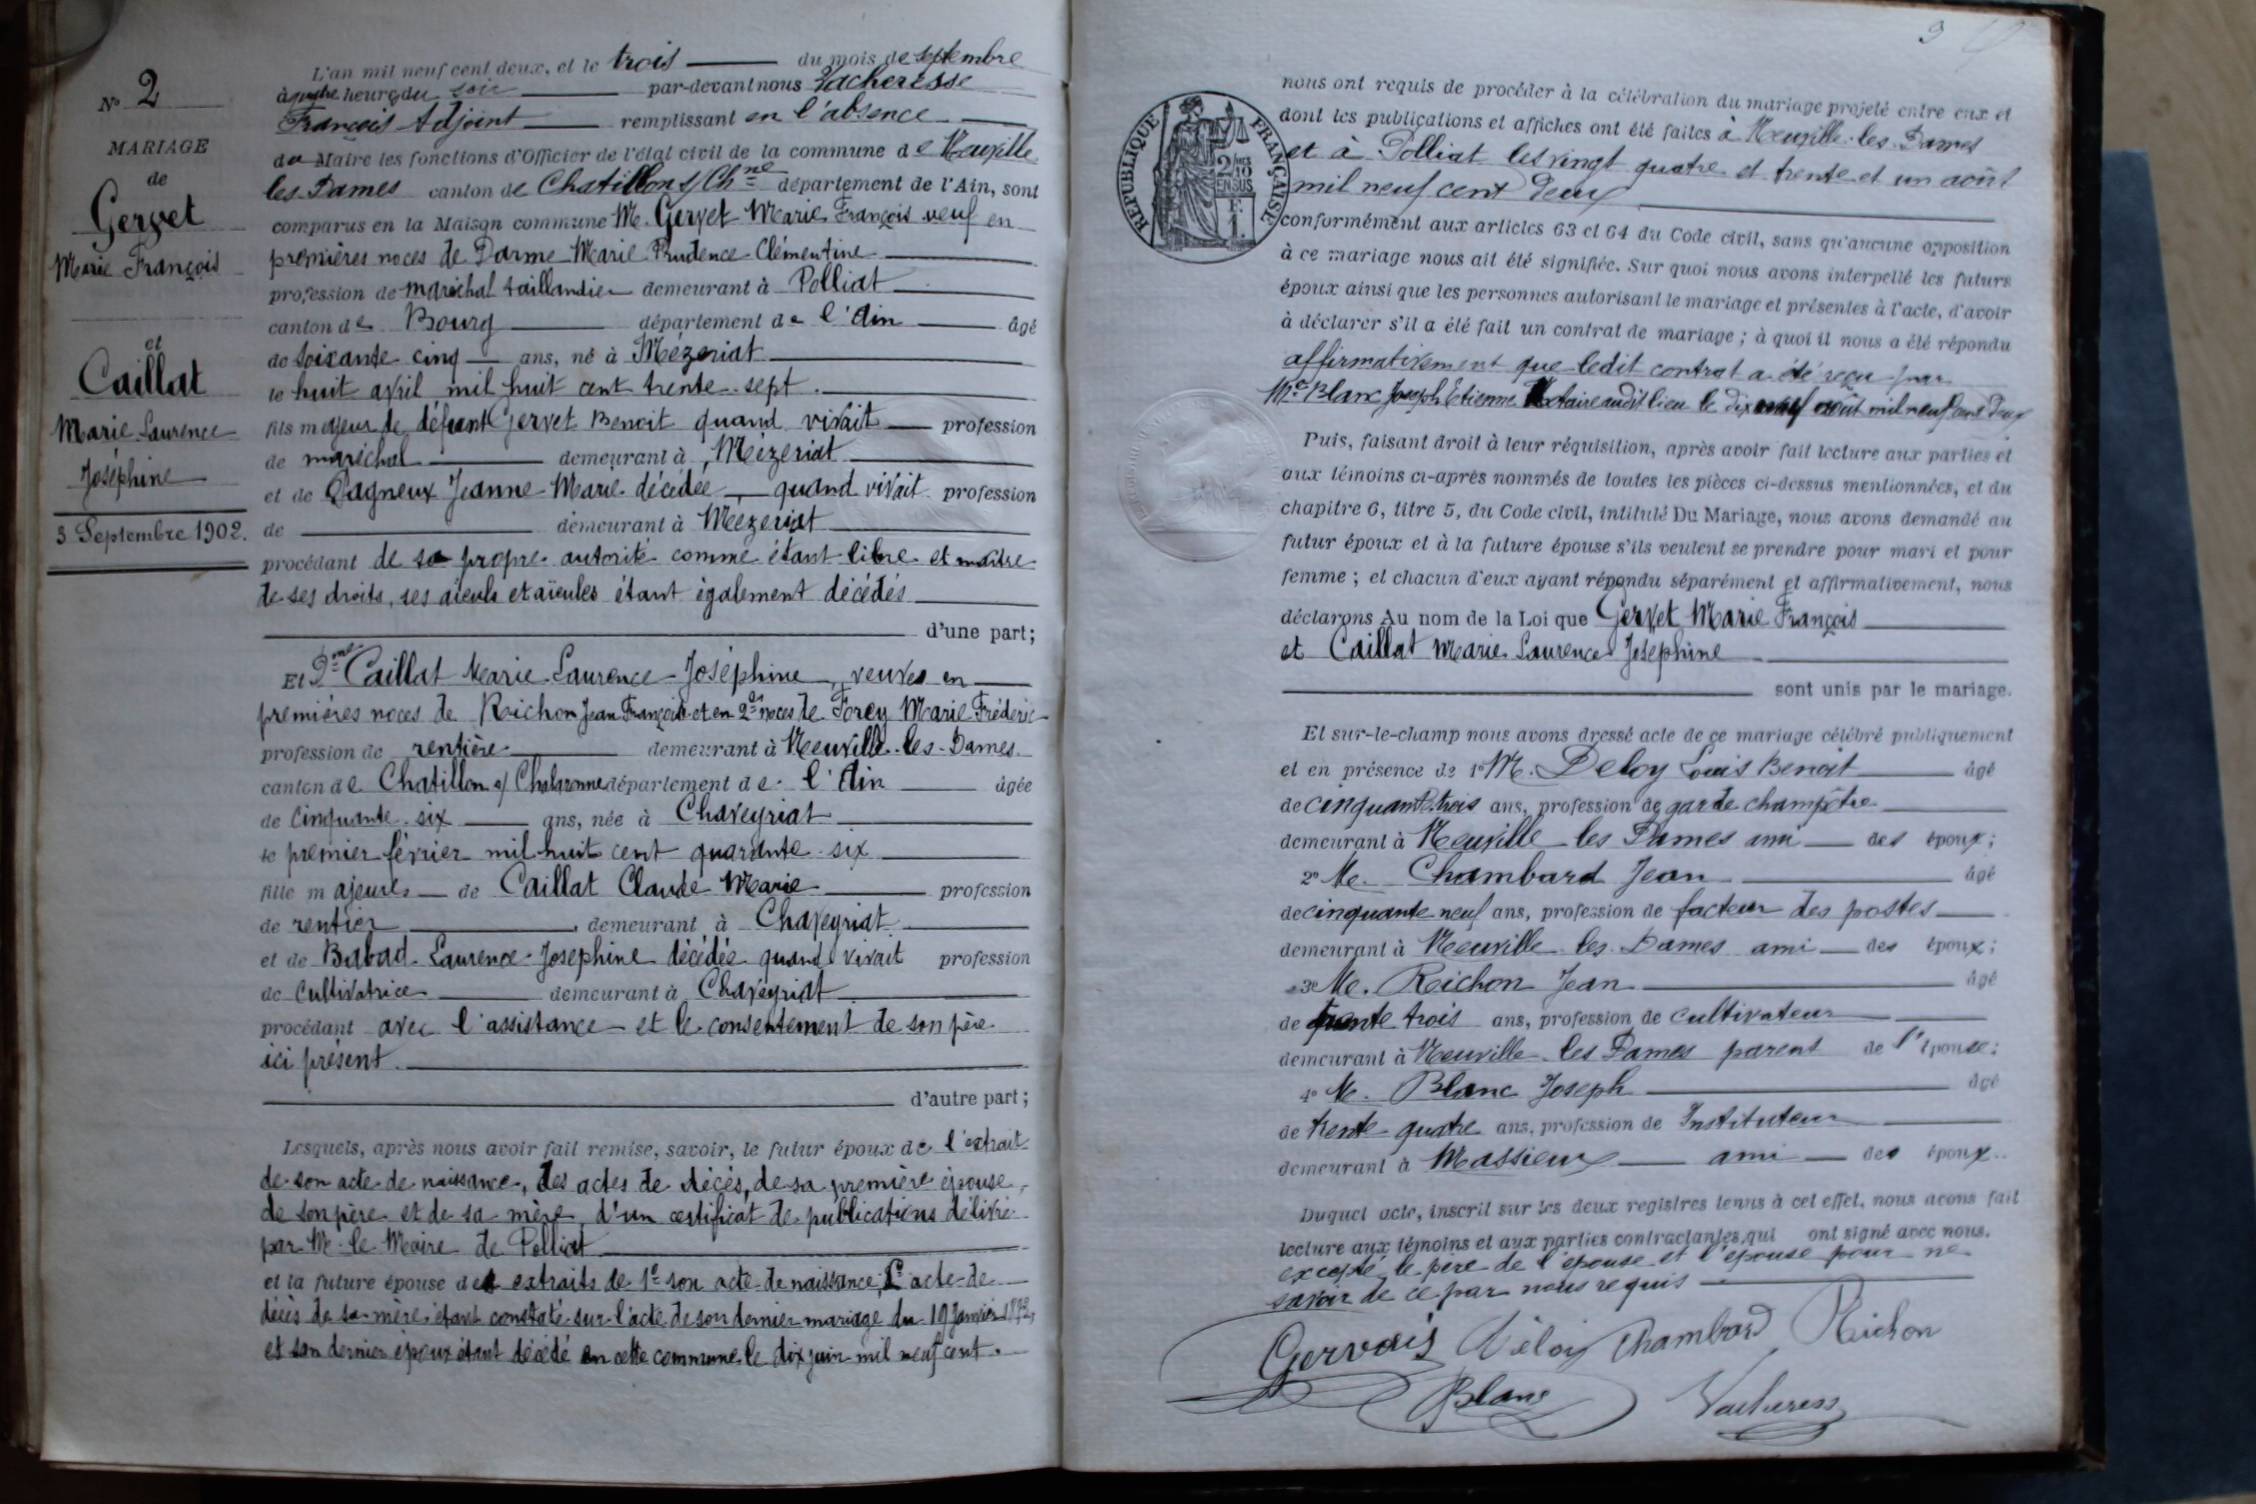 N° 2
MARIAGE
de
Gervet
Marie François
et
Caillat
Marie-Laurence
Joséphine
3 Septembre 1902.
L'an mil neuf cent deux, et le trois du mois de septembre
à quatre heures du soir par-devant nous Vacheresse
François Adjoint remplissant en l'absence
du Maire les fonctions d'Officier de l'état civil de la commune de Neuville
les-Dames canton de Chatillon s/ Chne département de l'Ain, sont
comparus en la Maison commune M. Gervet Marie François veuf en
premières noces de Darme Marie Prudence Clémentine
profession de maréchal taillandier demeurant à Polliat
canton de Bourg département de l'Ain âgé
de soixante-cinq ans, né à Mézeriat
le huit avril mil huit cent trente-sept.
fils majeur de défunt Gervet Benoit quand vivait profession
de maréchal demeurant à Mézeriat
et de Gagneux Jeanne-Marie décédée quand vivait profession
de demeurant à Mézeriat
procédant de sa propre autorité comme étant libre et maître
de ses droits, ses aïeuls et aïeules étant également décédés
d'une part;
Et Dme Caillat Marie-Laurence-Joséphine, veuve en
premières noces de Richon Jean François et en 2es noces de Forey Marie Frédéric
profession de rentière demeurant à Neuville-les-Dames
canton de Chatillon s/ Chalaronne département de l'Ain âgée
de cinquante-six ans, née à Chaveyriat
le premier février mil huit cent quarante-six
fille majeure de Caillat Claude Marie profession
de rentier demeurant à Chaveyriat
et de Babad Laurence-Josephine décédée quand vivait profession
de cultivatrice demeurant à Chaveyriat
procédant avec l'assistance et le consentement de son père
ici présent.
d'autre part;
Lesquels, après nous avoir fait remise, savoir, le futur époux de l'extrait
de son acte de naissance, des actes de décès, de sa première épouse,
de son père et de sa mère, d'un certificat de publications délivré
par M. le Maire de Polliat
et la future épouse des extraits de 1° son acte de naissance, l'acte de
décès de sa mère étant constaté sur l'acte de son dernier mariage du 19 Janvier
et son dernier époux étant décédé en cette commune le dix juin mil neuf cent.
3
RÉPUBLIQUE FRANÇAISE
2/10
EN SUS
F.
1.
nous ont requis de procéder à la célébration du mariage projeté entre eux et
dont les publications et affiches ont été faites à Neuville-les-Dames
et à Polliat les vingt quatre et trente et un août
mil neuf cent deux
conformément aux articles 63 et 64 du Code civil, sans qu'aucune opposition
à ce mariage nous ait été signifiée. Sur quoi nous avons interpellé les futurs
époux ainsi que les personnes autorisant le mariage et présentes à l'acte, d'avoir
à déclarer s'il a été fait un contrat de mariage ; à quoi il nous a été répondu
affirmativement que ledit contrat a été reçu par
Me Blanc Joseph Etienne Notaire audit lieu le dix neuf août mil neuf cent deux
Puis, faisant droit à leur réquisition, après avoir fait lecture aux parties et
aux témoins ci-après nommés de toutes les pièces ci-dessus mentionnées, et du
chapitre 6, titre 5, du Code civil, intitulé Du Mariage, nous avons demandé au
futur époux et à la future épouse s'ils veulent se prendre pour mari et pour
femme ; et chacun d'eux ayant répondu séparément et affirmativement, nous
déclarons Au nom de la Loi que Gervet Marie François
et Caillat Marie-Laurence-Joséphine
sont unis par le mariage.
Et sur-le-champ nous avons dressé acte de ce mariage célébré publiquement
et en présence de 1° M. Deloy Louis Benoit âgé
de cinquante-trois ans, profession de garde champêtre
demeurant à Neuville les Dames ami des époux;
2° M. Chambard Jean âgé
de cinquante neuf ans, profession de facteur des postes
demeurant à Neuville-les-Dames ami des époux;
3° M. Richon Jean âgé
de trente trois ans, profession de cultivateur
demeurant à Neuville les Dames parent de l'épouse;
4° M. Blanc Joseph âgé
de trente-quatre ans, profession de Instituteur
demeurant à Massieux ami des époux.
Duquel acte, inscrit sur les deux registres tenus à cet effet, nous avons fait
lecture aux témoins et aux parties contractantes, qui ont signé avec nous.
excepté le père de l'épouse et l'épouse pour ne
savoir de ce par nous requis
Gervais Déloy Chambard Richon
Blanc Vacheress